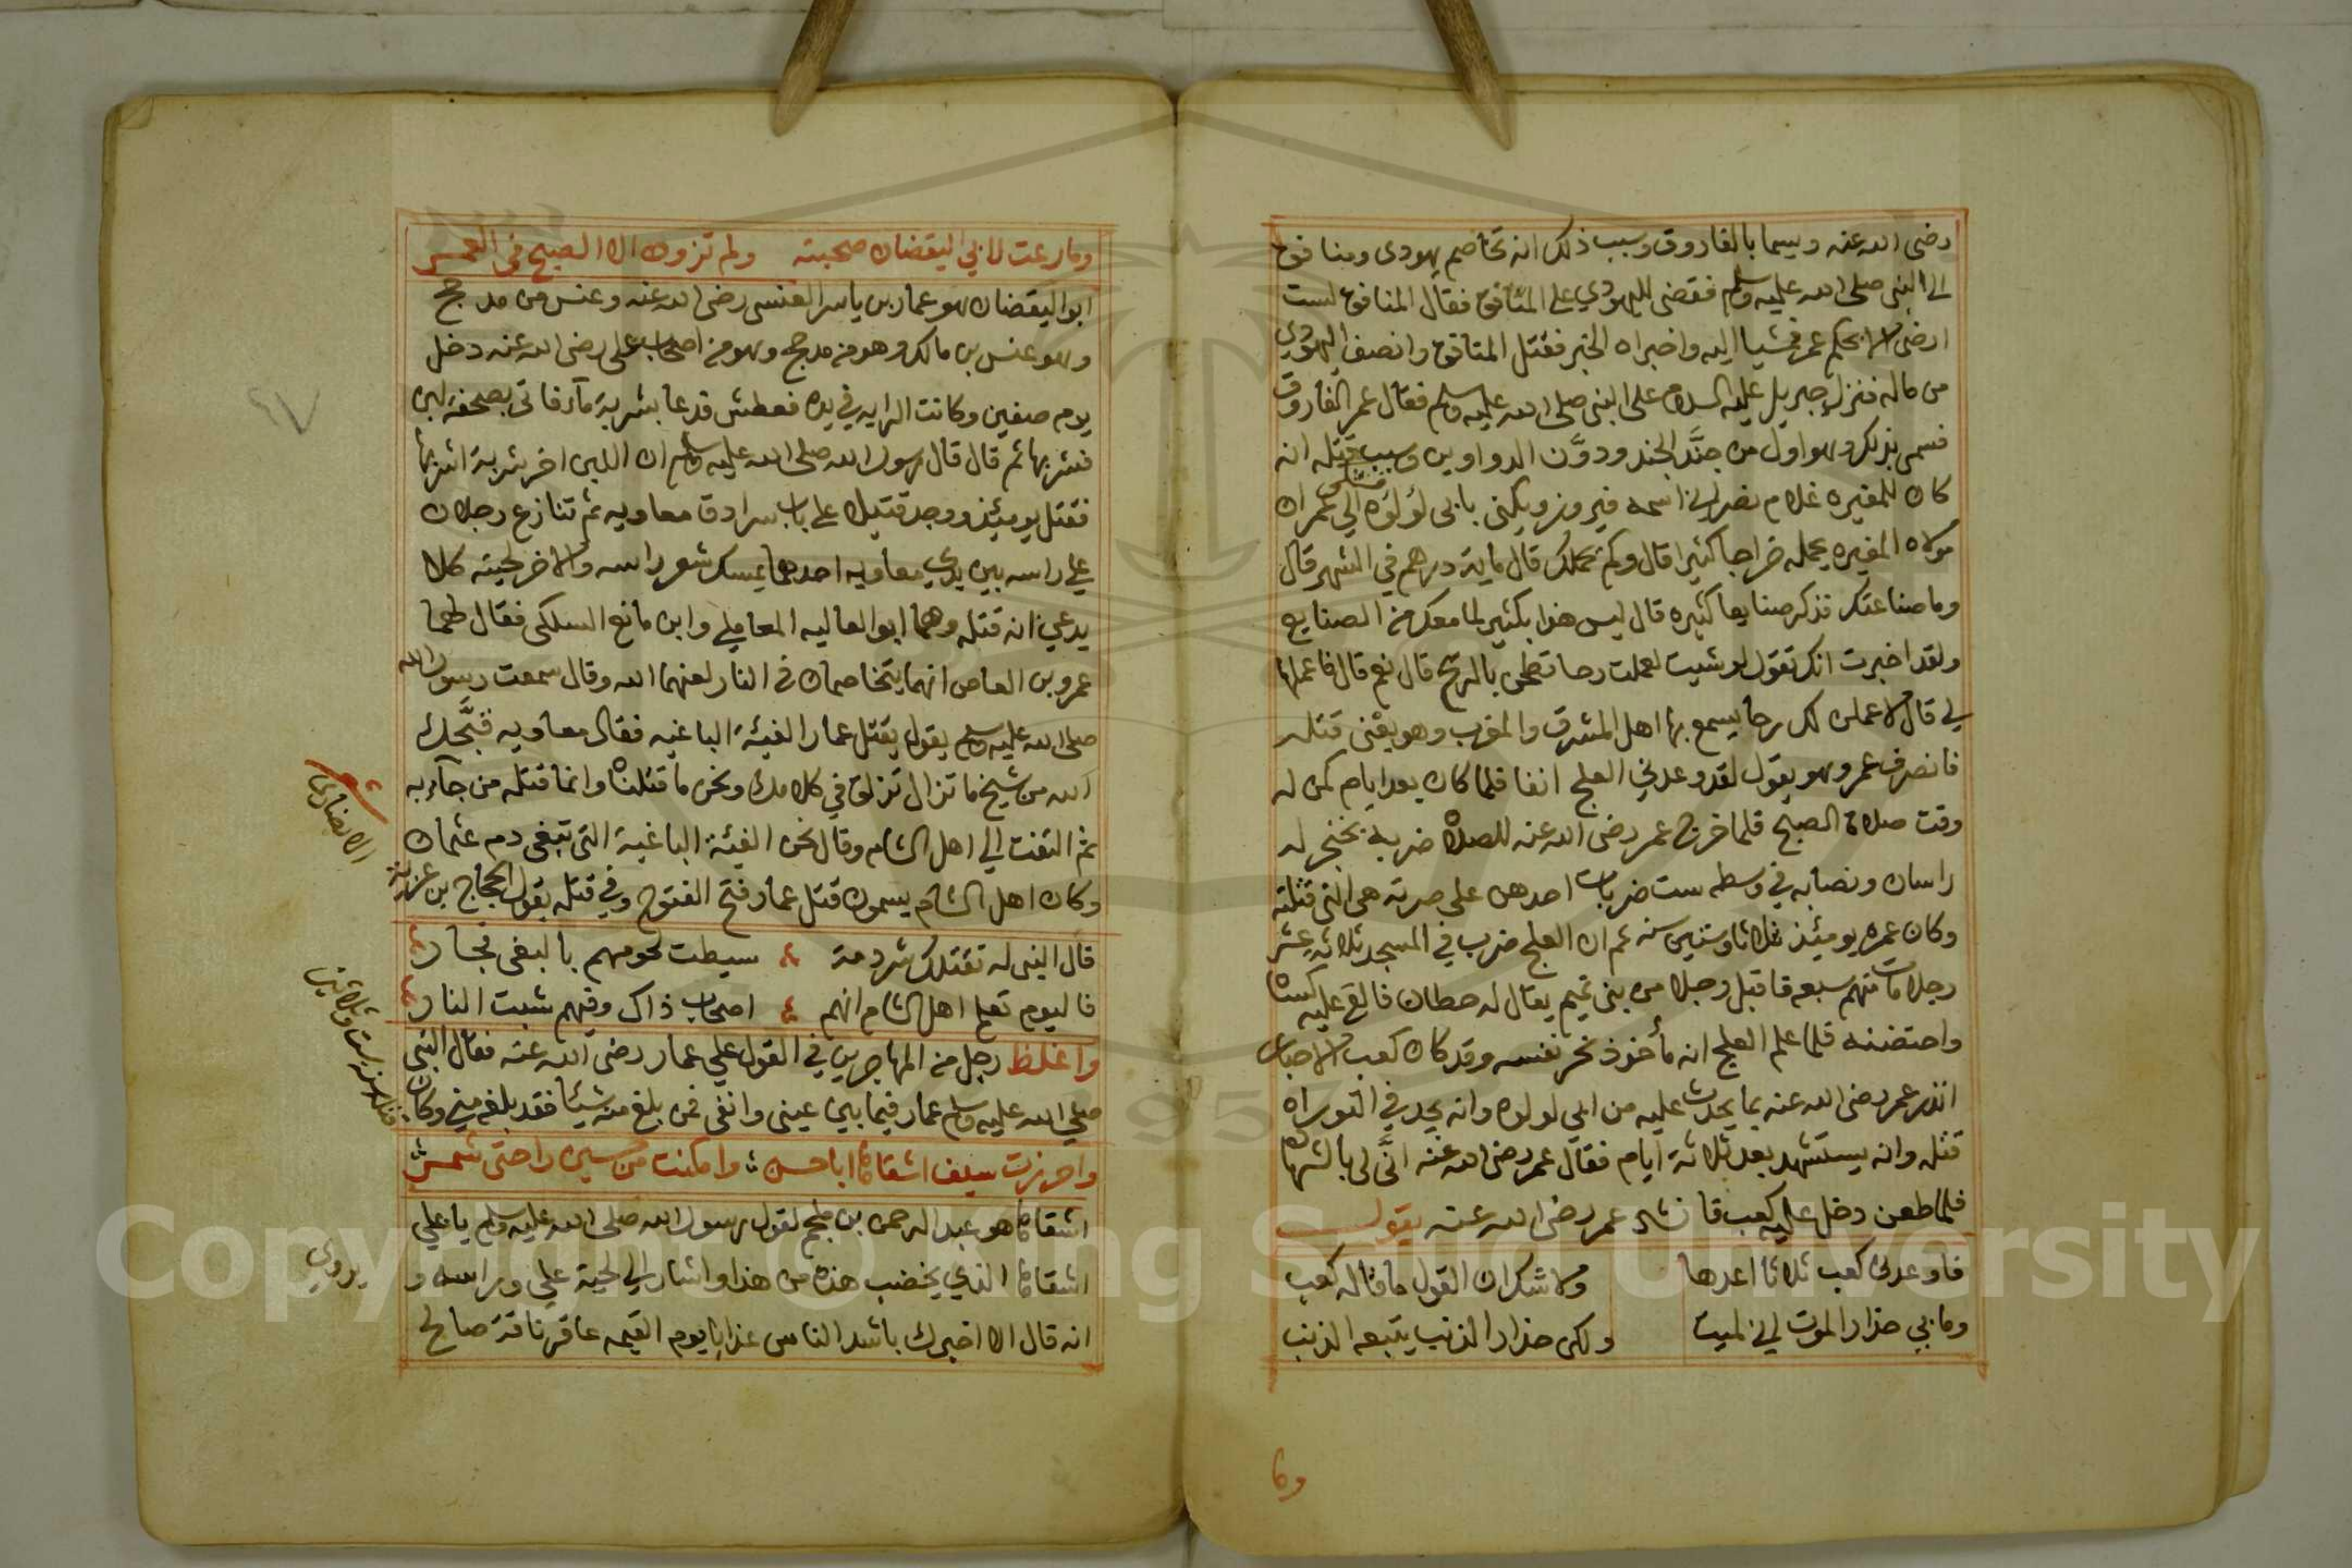 رضى الله عنه ويسما بالفاروق وسبب ذلك انه تخاصم يهودى ومنافق
الى النبى صلى الله عليه وسلم فقضى لليهودي على المنافق فقال المنافق لست
ارضى الا بحكم عمر فمشيا اليه واخبراه الخبر فقتل المنافق وانصف اليهودي
من ماله فنزل جبريل عليه السلام على النبى صلى الله عليه وسلم فقال عمر الفاروق
فسمى بذلك وهو اول من جنَّد الجند ودوَّن الدواوين وسبب قتله انه
كان للمغيره غلام نصرانى اسمه فيروز ويكنى بابى لؤلؤه فشكى الي عمر ان
مولاه المغيره يحمله خراجا كثيرا قال وكم تحملك قال ماية درهم في الشهر قال
وما صناعتك فذكر صنايعا كثيره قال ليس هذا بكثير لما معك من الصنايع
ولقد اخبرت انك تقول لو شيت لعملت رحا تطحن بالريح قال نعم قال فاعملها
لي قال لاعملن لك رحا يسمع بها اهل المشرق والمغرب وهو يعنى قتله
فانصرف عمر وهو يقول لقد وعدني العلج انفا فلما كان بعد ايام كمن له
وقت صلاة الصبح فلما خرج عمر رضى الله عنه للصلاة ضربه بخنجر له
راسان ونصابه في وسطه ست ضربات احدهن على صرته هى التى قتلته
وكان عمره يومئذ ثلاثا وستين سنه ثم ان العلج ضرب في المسجد ثلاثه عشر
رجلا مات منهم سبعه فاقبل رجلا من بنى تميم يقال له حطان فالقى عليه كساه
واحتضنه فلما علم العلج انه مأخوذ نحر نفسه وقد كان كعب الاحبار
انذر عمر رضى الله عنه بما يحدث عليه من ابي لولوه وانه يجد في التوراه
قتله وانه يستشهد بعد ثلاثة ايام فقال عمر رضى الله عنه انَّى لى بالشهاده
فلما طعن دخل عليه كعب فانشد عمر رضى الله عنه يقول
فاوعدنى كعب ثلاثا اعدها ولا شك ان القول ما قاله كعب
وما بي حذار الموت اني لميت ولكن حذار الذنب يتبعه الذنب
وما
وما رعت لابي اليقضان صحبته ولم تزود الا الصبح في الغمر
ابو اليقضان هو عمار بن ياسر العنسى رضى الله عنه وعنس من مدحج
وهو عنس بن مالك وهو من مدحج وهو من اصحاب على رضى الله عنه دخل
يوم صفين وكانت الرايه في يده فعطش فدعا بشربة مآء فاتى بصحفة لبن
فشربها ثم قال قال رسول الله صلى الله عليه وسلم ان اللبن اخر شربة اشربها
فقتل يومئذ ووجد قتيلا على باب سرادق معاويه ثم تنازع رجلان
علي راسه بين يدي معاويه احدهما يمسك شعر راسه والاخر لحيته كلا
يدعي انه قتله وهما ابو العاليه المعاملي وابن مانع السلكى فقال لهما
عمرو بن العاص انهما يتخاصمان في النار لعنهما الله وقال سمعت رسول الله
صلى الله عليه وسلم يقول يقتل عمار الفيئة الباغيه فقال معاويه قبَّحك
الله من شيخ ما تزال تزلق في كلامك ونحن ما قتلناه وانما قتله من جآء به
ثم التفت الي اهل الشام وقال نحن الفيئة الباغية التى تبغى دم عثمان
وكان اهل الشام يسمون قتل عمار فتح الفتوح وفي قتله يقول الحجاج بن عزيه
الانصارى شعر
قال النبى له تقتلك شرذمة سيطت لحومهم بالبغى فجار
فاليوم تعلم اهل الشام انهم اصحاب ذاك وفيهم شبت النار
واغلظ رجل من المهاجرين في القول علي عمار رضى الله عنه فقال النبى
صلي الله عليه وسلم عمار فيما بين عينى وانفى فمن بلغ منه شيئا فقد بلغه مني وكان
واحرزت سيف اشقاها اباحسن وامكنت من حسين راحتى شمر
اشقاها هو عبد الرحمن بن ملجم لقول رسول الله صلى الله عليه وسلم يا علي
اشقاها الذي يخضب هذه من هذا واشار الي لحية علي وراسه و
يروي
انه قال الا اخبرك باشد الناس عذابا يوم القيمه عاقر ناقة صالح